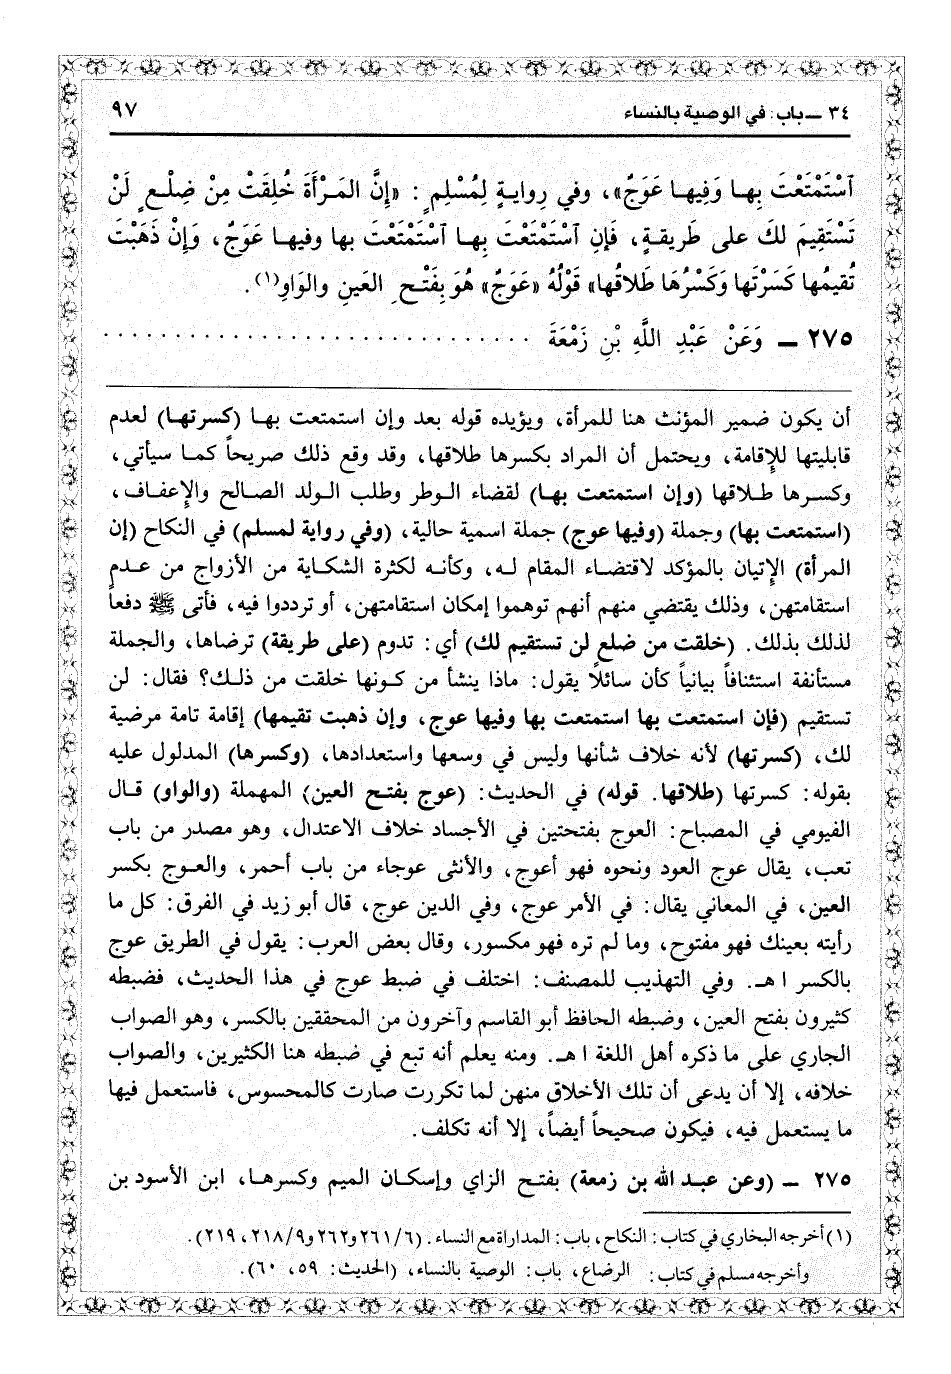 ٣٤ ــ باب: في الوصية بالنساء ٩٧
ٱسْتَمْتَعْتَ بِهـا وَفِيهـا عَوَجٌ»، وفي رِوايـةٍ لِمُسْلِمٍ: «إِنَّ المَـرْأَةَ خُلِقَتْ مِنْ ضِلْـعٍ لَنْ
تَسْتَقِيمَ لَكَ على طَرِيقـةٍ، فَإِنِ ٱسْتَمْتَعْتَ بِهـا ٱسْتَمْتَعْتَ بها وفيهـا عَوَجٌ، وَإِنْ ذَهَبْتَ
تُقِيمُها كَسَرْتَها وَكَسْرُهَا طَلاقُها» قَوْلُهُ «عَوَجٌ» هُوَ بِفَتْحِ العَينِ والوَاوِ(١).
٢٧٥ ــ وَعَنْ عَبْدِ اللَّهِ بْنِ زَمْعَةَ . . . . . . . . . . . . . . . . . . . . . . . . . . . . . .
أن يكون ضمير المؤنث هنا للمرأة، ويؤيده قوله بعد وإن استمتعت بهـا (كسرتهـا) لعدم
قابليتها للإقامة، ويحتمل أن المراد بكسرها طلاقها، وقد وقع ذلك صريحاً كمـا سيأتي،
وكسرها طـلاقها (وإن استمتعت بهـا) لقضاء الـوطر وطلب الـولد الصـالح والإعفـاف،
(استمتعت بها) وجملة (وفيها عوج) جملة اسمية حالية، (وفي رواية لمسلم) في النكاح (إن
المرأة) الإتيان بالمؤكد لاقتضـاء المقام لـه، وكأنـه لكثرة الشكـاية من الأزواج من عـدم
استقامتهن، وذلك يقتضي منهم أنهم توهموا إمكان استقامتهن، أو ترددوا فيه، فأتى ﷺ دفعاً
لذلك بذلك. (خلقت من ضلع لن تستقيم لك) أي: تدوم (على طريقة) ترضاها، والجملة
مستأنفة استئنافاً بيانياً كأن سائلًا يقول: ماذا ينشأ من كـونها خلقت من ذلـك؟ فقال: لن
تستقيم (فإن استمتعت بها استمتعت بها وفيها عوج، وإن ذهبت تقيمها) إقامة تامة مرضية
لك، (كسرتها) لأنه خلاف شأنها وليس في وسعها واستعدادها، (وكسرها) المدلول عليه
بقوله: كسرتها (طلاقها. قوله) في الحديث: (عوج بفتـح العين) المهملة (والواو) قـال
الفيومي في المصباح: العوج بفتحتين في الأجساد خلاف الاعتدال، وهو مصدر من باب
تعب، يقال عوج العود ونحوه فهو أعوج، والأنثى عوجاء من باب أحمر، والعـوج بكسر
العين، في المعاني يقال: في الأمر عوج، وفي الدين عوج، قال أبو زيد في الفرق: كل ما
رأيته بعينك فهو مفتوح، وما لم تره فهو مكسور، وقال بعض العرب: يقول في الطريق عوج
بالكسر ا هـ. وفي التهذيب للمصنف: اختلف في ضبط عوج في هذا الحديث، فضبطه
كثيرون بفتح العين، وضبطه الحافظ أبو القاسم وآخرون من المحققين بالكسر، وهو الصواب
الجاري على ما ذكره أهل اللغة ا هـ. ومنه يعلم أنه تبع في ضبطه هنا الكثيرين، والصواب
خلافه، إلا أن يدعى أن تلك الأخلاق منهن لما تكررت صارت كالمحسوس، فاستعمل فيها
ما يستعمل فيه، فيكون صحيحاً أيضاً، إلا أنه تكلف.
٢٧٥ ــ (وعن عبـد الله بن زمعة) بفتـح الزاي وإسكـان الميم وكسرهـا، ابن الأسود بن
(١) أخرجه البخاري في كتاب: النكاح، باب: المداراة مع النساء. (٢٦١/٦ و٢٦٢ و٢١٨/٩، ٢١٩).
وأخرجه مسلم في كتاب: الرضاع، باب: الوصية بالنساء، (الحديث: ٥٩، ٦٠).